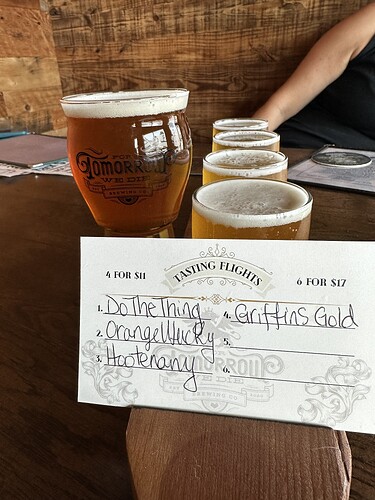 FOR
TOMORROW
WE DIE
BREWING CO.
TASTING FLIGHTS
4 FOR $11
6 FOR $17
1. DoTheThing
2. OrangeUlucky
3. Hootenany
4. Griffins Gold
5.
6.
TOMORROW
WE DIE
BREWING CO